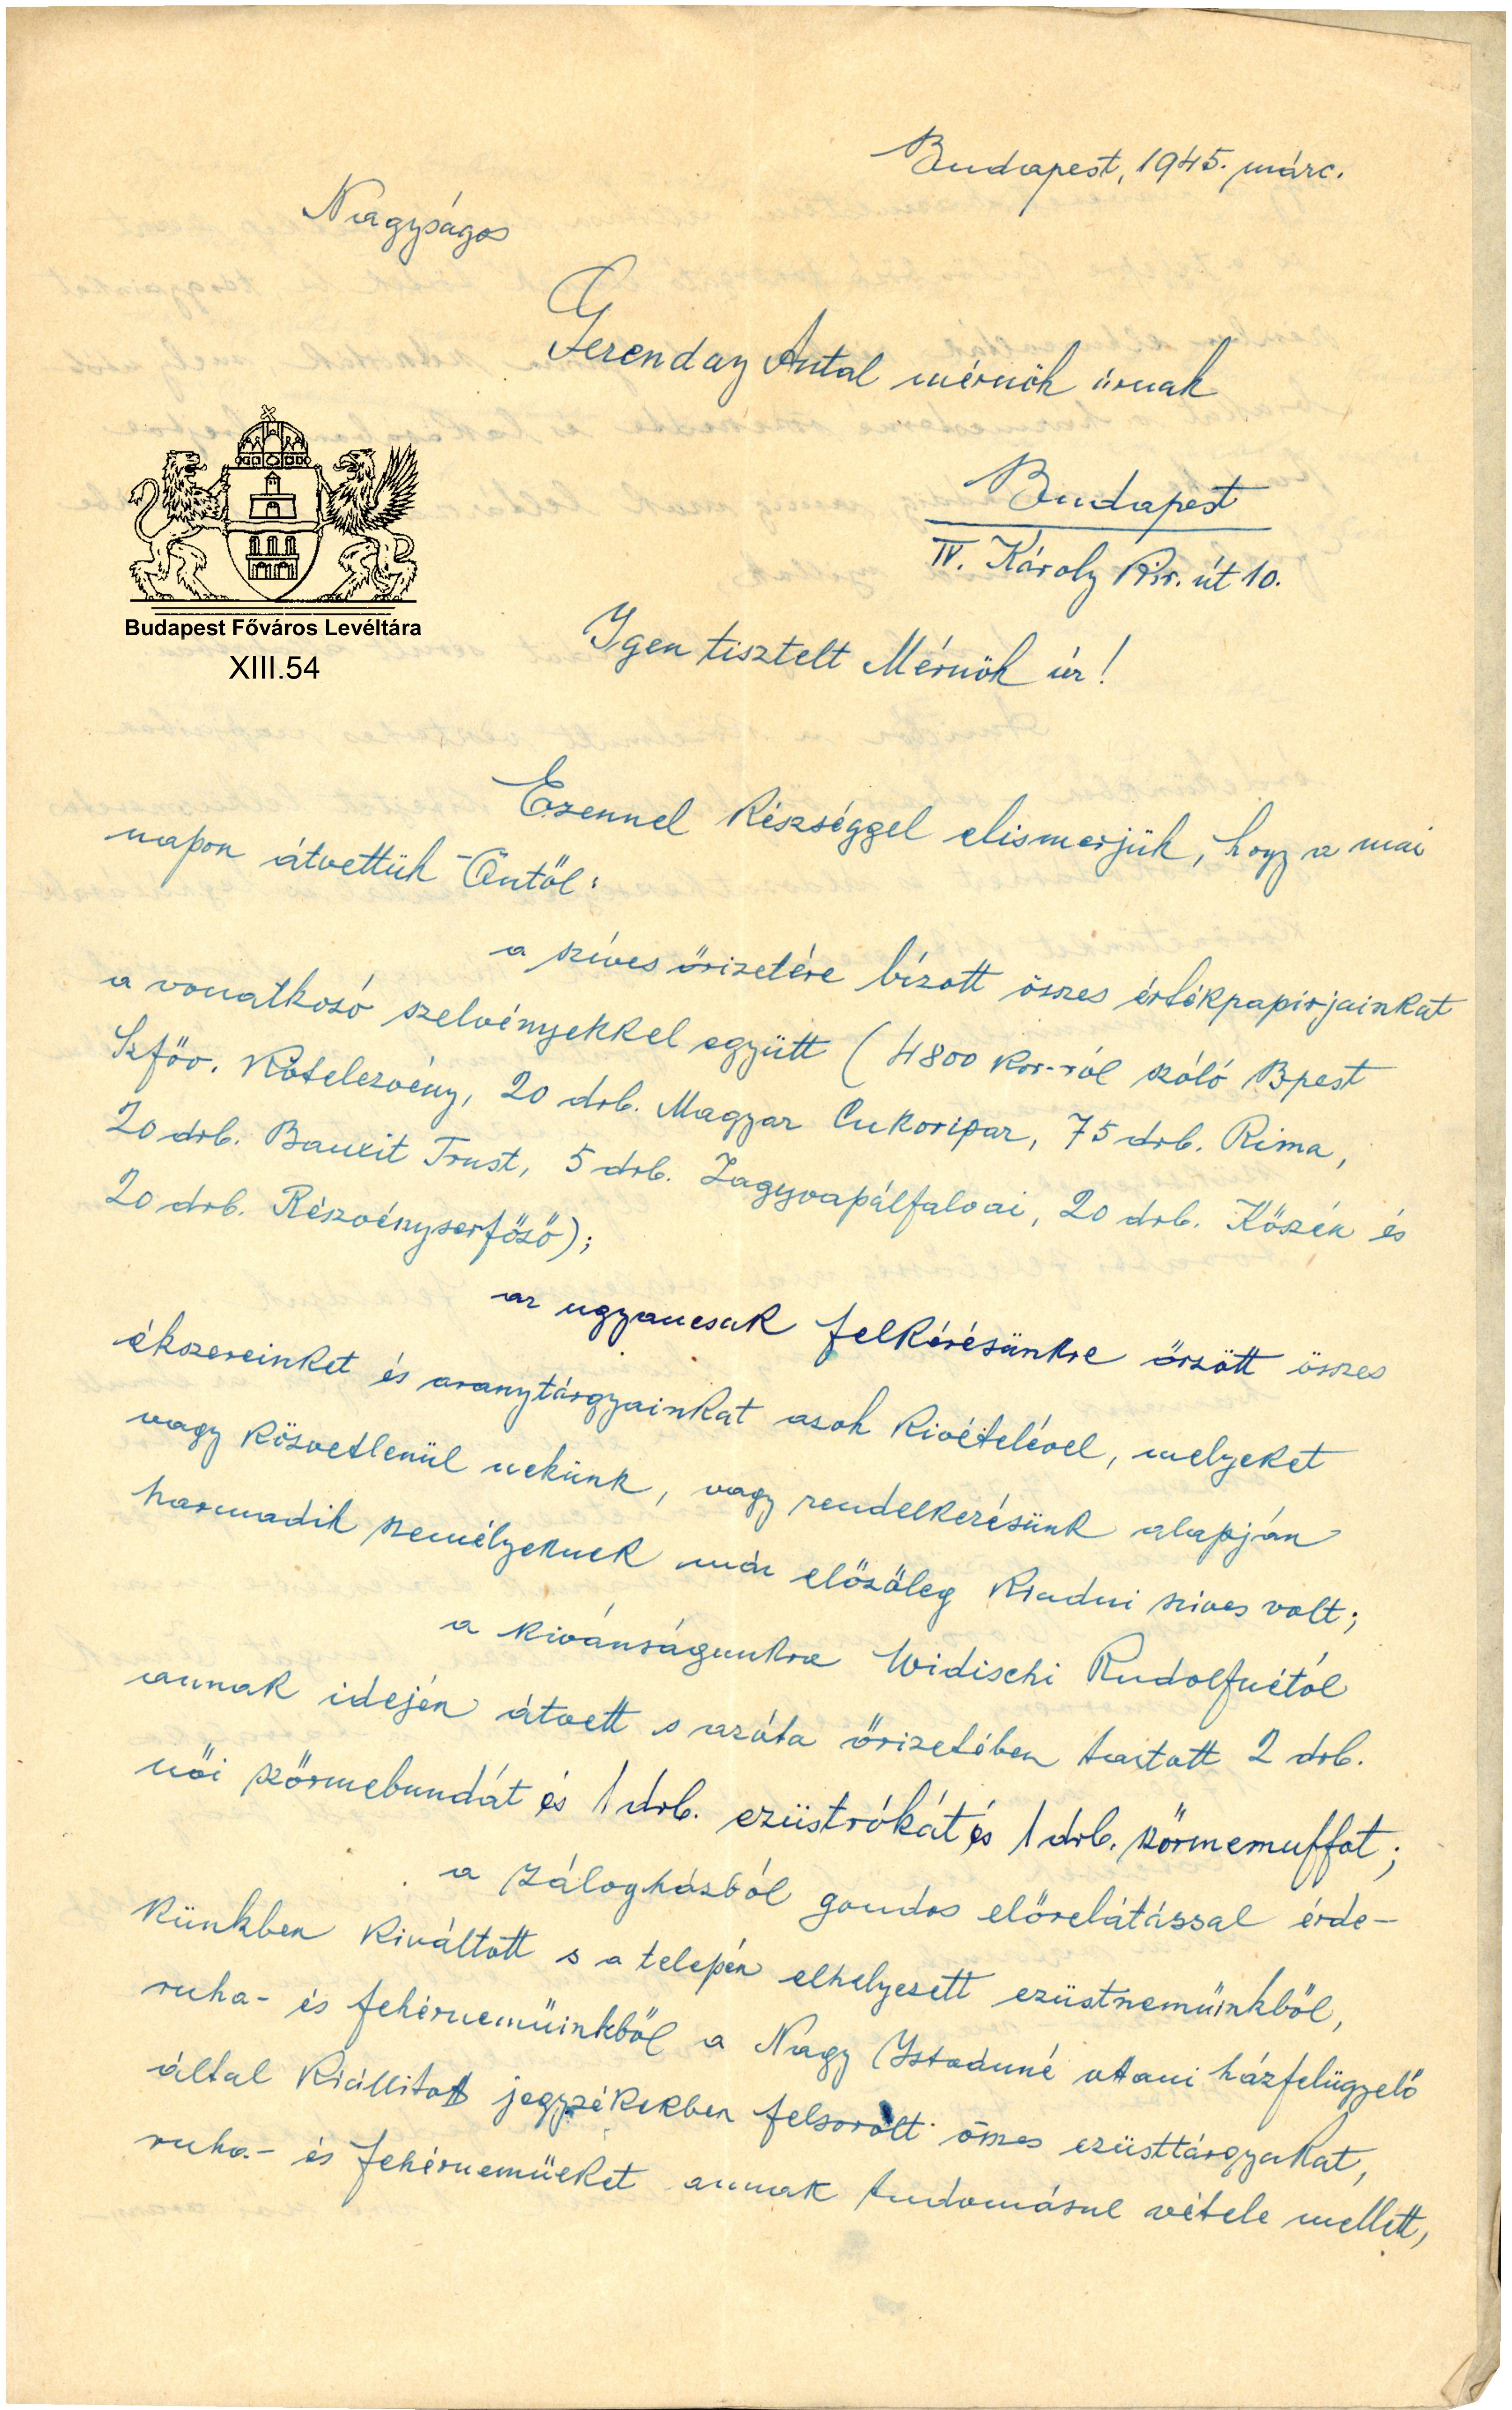 Budapest, 1945. márc.
Nagyságos
Gerenday Antal mérnök úrnak
Budapest
IV. Károly Kir. út 10.
Budapest Főváros Levéltára
XIII.54
Igen tisztelt Mérnök úr!
Ezennel készséggel elismerjük, hogy a mai
napon átvettük Öntől:
a szíves őrizetére bízott összes értékpapirjainkat
a vonatkozó szelvényekkel együtt (4800 Kor.-ról szóló Bpest
Szföv. Kötelezvény, 20 drb. Magyar Cukoripar, 75 drb. Rima,
20 drb. Bauxit Trust, 5 drb. Zagyvapálfalvai, 20 drb. Kőszén és
20 drb. Részvényserfőző);
az ugyancsak felkérésünkre őrzött összes
ékszereinket és aranytárgyainkat azok kivételével, melyeket
vagy közvetlenül nekünk, vagy rendelkezésünk alapján
harmadik személyeknek már előzőleg kiadni szives volt;
a kivánságunkra Widischi Rudolfnétól
annak idején átvett s azóta őrizetében tartott 2 drb.
női szőrmebundát és 1 drb. ezüstrókát és 1 drb. szőrmemuffot;
a zálogházból gondos előrelátással érde-
künkben kiváltott s a telepén elhelyezett ezüstneműinkből,
ruha- és fehérneműinkből a Nagy Istvánné utani házfelügyelő
által kiállitott jegyzékekben felsorolt összes ezüsttárgyakat,
ruha- és fehérneműeket annak tudomásul vétele mellett,